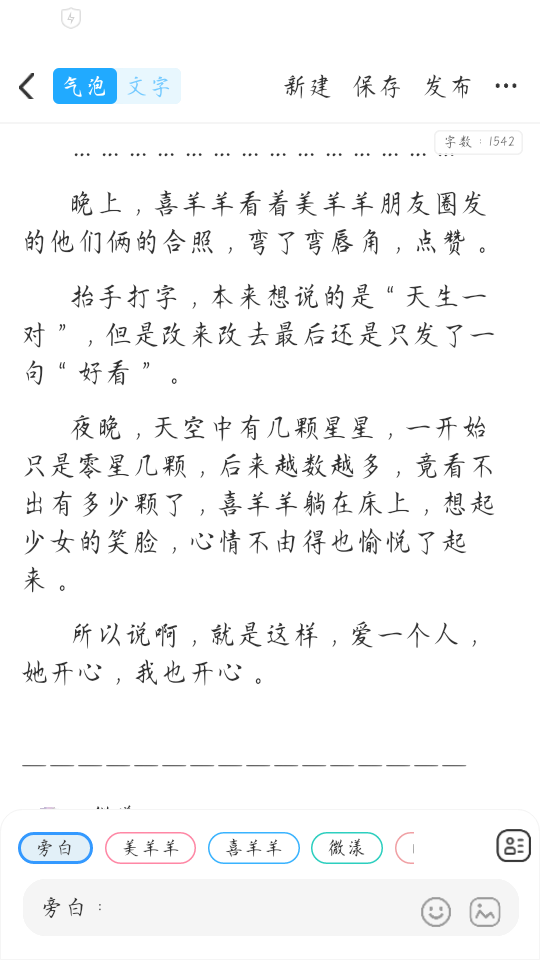 气泡 文字 新建 保存 发布 ···
字数：1542
… … … … … … … … … … … … … …
晚上，喜羊羊看着美羊羊朋友圈发
的他们俩的合照，弯了弯唇角，点赞。
抬手打字，本来想说的是“天生一
对”，但是改来改去最后还是只发了一
句“好看”。
夜晚，天空中有几颗星星，一开始
只是零星几颗，后来越数越多，竟看不
出有多少颗了，喜羊羊躺在床上，想起
少女的笑脸，心情不由得也愉悦了起
来。
所以说啊，就是这样，爱一个人，
她开心，我也开心。
————————————————
旁白 美羊羊 喜羊羊 微漾
旁白：